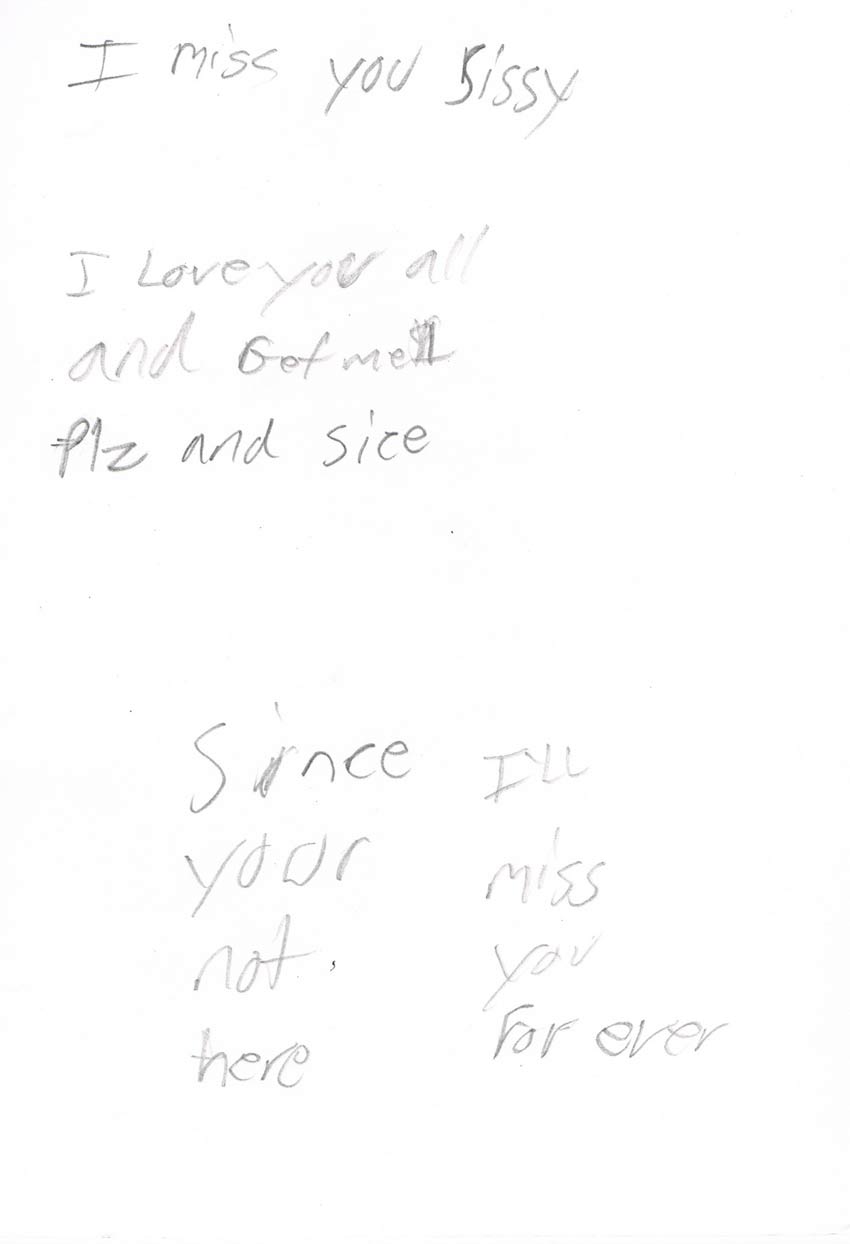 I miss you Sissy
I Love you all
and Get me
Plz and sice
Since
your
not
here
I'll
miss
you
For ever